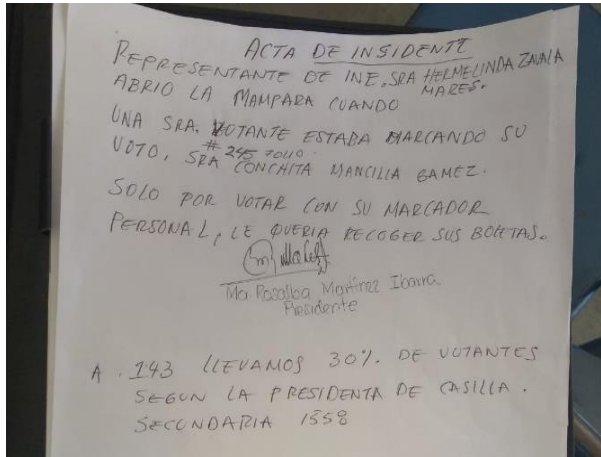 ACTA DE INSIDENTE
REPRESENTANTE DE INE, SRA HERMELINDA ZAVALA
MARES.
ABRIO LA MAMPARA CUANDO
UNA SRA. VOTANTE ESTABA MARCANDO SU
VOTO, SRA # 245 CONCHITA MANCILLA GAMEZ.
SOLO POR VOTAR CON SU MARCADOR
PERSONAL, LE QUERIA RECOGER SUS BOLETAS.
Ma Rosalba Martínez Ibarra
Presidente
A. 143 LLEVAMOS 30%. DE VOTANTES
SEGUN LA PRESIDENTA DE CASILLA.
SECUNDARIA 1558